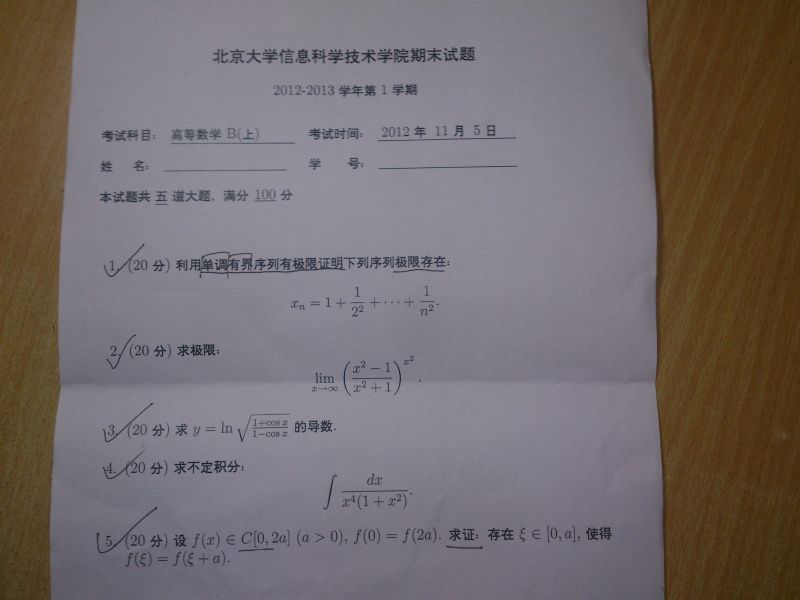 北京大学信息科学技术学院期末试题
2012-2013 学年第 1 学期
考试科目: 高等数学 B(上) 考试时间: 2012 年 11 月 5 日
姓 名: 学 号:
本试题共 五 道大题, 满分 100 分
1. (20 分) 利用单调有界序列有极限证明下列序列极限存在:
x_n = 1 + 1/2² + ⋯ + 1/n².
2. (20 分) 求极限:
lim_{x→∞} ((x² − 1)/(x² + 1))^{x²}.
3. (20 分) 求 y = ln √((1+cos x)/(1−cos x)) 的导数.
4. (20 分) 求不定积分:
∫ dx/(x⁴(1 + x²)).
5. (20 分) 设 f(x) ∈ C[0, 2a] (a > 0), f(0) = f(2a). 求证: 存在 ξ ∈ [0, a], 使得
f(ξ) = f(ξ + a).